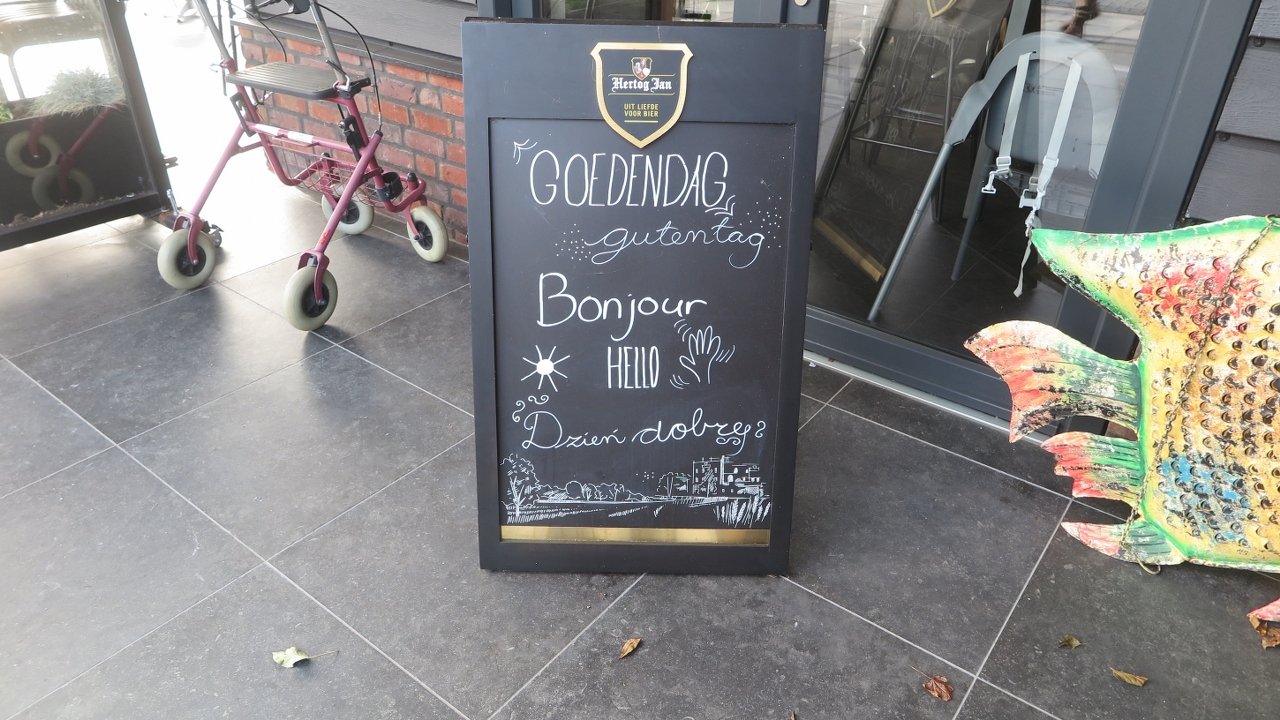 Hertog Jan
UIT LIEFDE
VOOR BIER
GOEDENDAG
gutentag
Bonjour
HELLO
Dzień dobry